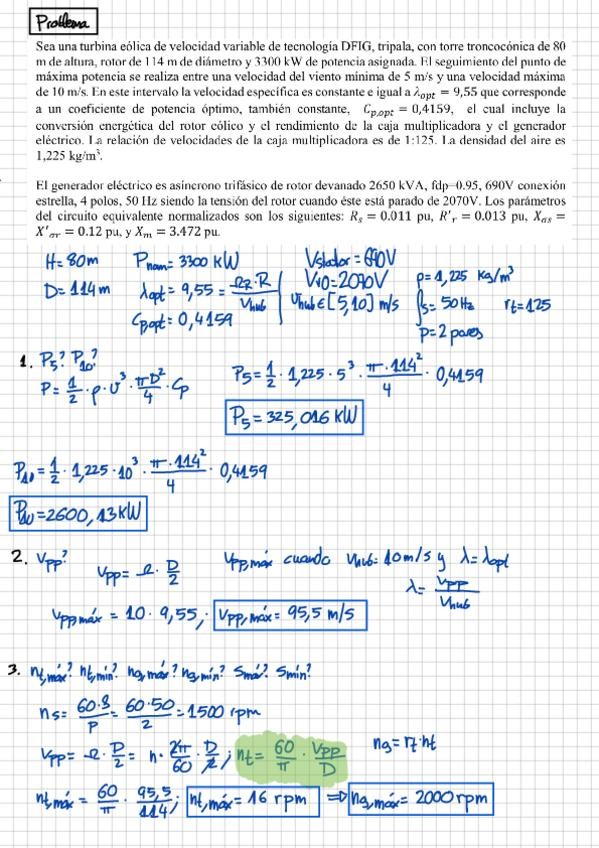 Problema
Sea una turbina eólica de velocidad variable de tecnología DFIG, tripala, con torre troncocónica de 80
m de altura, rotor de 114 m de diámetro y 3300 kW de potencia asignada. El seguimiento del punto de
máxima potencia se realiza entre una velocidad del viento mínima de 5 m/s y una velocidad máxima
de 10 m/s. En este intervalo la velocidad específica es constante e igual a λopt = 9,55 que corresponde
a un coeficiente de potencia óptimo, también constante, Cp,opt = 0,4159, el cual incluye la
conversión energética del rotor eólico y el rendimiento de la caja multiplicadora y el generador
eléctrico. La relación de velocidades de la caja multiplicadora es de 1:125. La densidad del aire es
1,225 kg/m³.
El generador eléctrico es asíncrono trifásico de rotor devanado 2650 kVA, fdp=0.95, 690V conexión
estrella, 4 polos, 50 Hz siendo la tensión del rotor cuando éste está parado de 2070V. Los parámetros
del circuito equivalente normalizados son los siguientes: Rs = 0.011 pu, R'r = 0.013 pu, Xσs =
X'σr = 0.12 pu, y Xm = 3.472 pu.
H=80m Pnom= 3300 KW Vstator = 690V
D=114m λopt = 9,55 = ΩR·R/Vhub Vro=2070V ρ=1,225 Kg/m³
Cpopt = 0,4159 Vhub∈[5,10] m/s fs=50Hz rt=125
P=2 pares
1. P5? P10?
P= 1/2 · ρ·v³ · πD²/4 · Cp P5= 1/2 · 1,225·5³ · π·114²/4 · 0,4159
P5=325,016 KW
P10= 1/2 · 1,225·10³ · π·114²/4 · 0,4159
P10=2600,13KW
2. Vpp? Vpp= Ω·D/2 Vpp,máx cuando Vhub=10m/s y λ=λopt
λ= Vpp/Vhub
Vpp máx = 10·9,55; Vpp,máx= 95,5 m/s
3. nt,máx? nt,mín? ng,máx? ng,mín? Smáx? Smín?
ns= 60·f/P = 60·50/2 = 1500 rpm
Vpp= Ω·D/2 = n·2π/60·D/2; nt= 60/π · Vpp/D ng=rt·nt
nt,máx = 60/π · 95,5/114; nt,máx= 16 rpm ⇒ ng,máx= 2000rpm